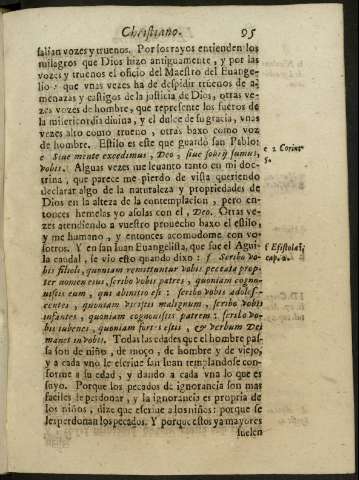 Christiano. 95
salian vozes y truenos. Por los rayos entienden los
milagros que Dios hizo antiguamente, y por las
vozes y truenos el oficio del Maestro del Euange-
lio: que vnas vezes ha de despidir truenos de a-
menazas y castigos de la justicia de Dios, otras ve-
zes vozes de hombre, que represente los fueros de
la misericordia diuina, y el dulce de su gracia, vnas
vezes alto como trueno, otras baxo como voz
de hombre. Estilo es este que guardó san Pablo:
e Siue mente excedimus, Deo, siue sobrij sumus,
vobis. Algunas vezes me leuanto tanto en mi doc-
trina, que parece me pierdo de vista queriendo
declarar algo de la naturaleza y propiedades de
Dios en la alteza de la contemplacion, pero en-
tonces hemelas yo a solas con el, Deo. Otras ve-
zes atendiendo a vuestro prouecho baxo el estilo,
y me humano, y entonces acomodome con vo-
sotros. Y en san Iuan Euangelista, que fue el Agui
la caudal, se vio esto quando dixo: f Scribo vo-
bis filioli, quoniam remittuntur vobis peccata prop-
ter nomen eius, scribo vobis patres, quoniam cogno-
uistis eum, qui ab initio est: scribo vobis adoles-
centes, quoniam vicistis malignum, scribo vobis
infantes, quoniam cognouistis patrem: scribo vo-
bis iuuenes, quoniam fortes estis, & verbum Dei
manet in vobis. Todas las edades que el hombre pas-
sa son de niño, de moço, de hombre y de viejo,
y a cada vno le escriue san Iuan templandose con-
forme a su edad, y dando a cada vna lo que es
suyo. Porque los pecados de ignorancia son mas
faciles de perdonar, y la ignorancia es propria de
los niños, dize que escriue a los niños: porque se
les perdonan los pecados. Y porque estos ya mayores
suelen
e 2. Corint.
5.
f Epistola 1.
cap. 2.